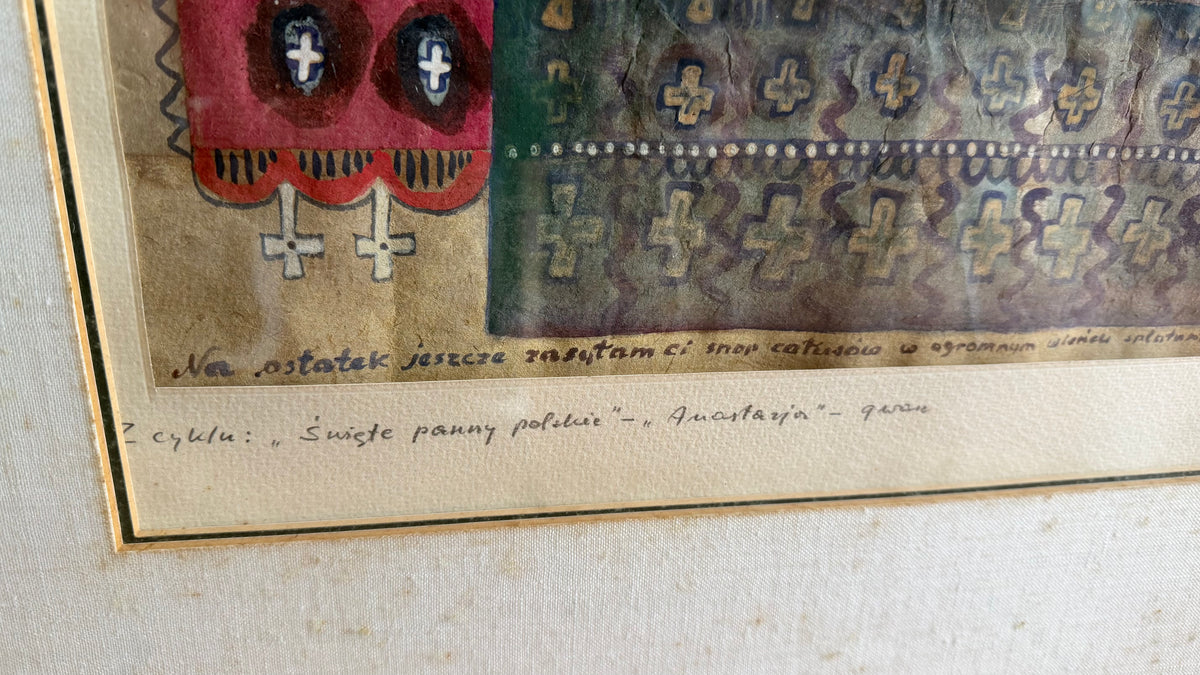 Na ostatek jeszcze zasyłam ci snop całusów w ogromnym wieńcu
Z cyklu: „Święte panny polskie” – „Anastazja” – gwasz